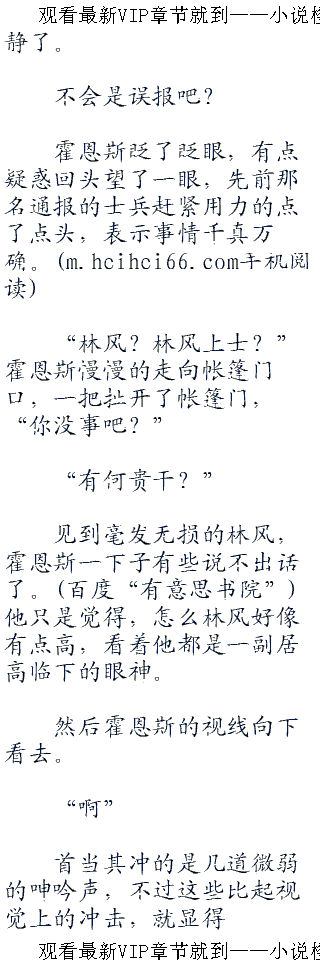 观看最新VIP章节就到——小说
静了。
不会是误报吧?
霍恩斯眨了眨眼,有点
疑惑回头望了一眼,先前那
名通报的士兵赶紧用力的点
了点头,表示事情千真万
确。(m.hcihci66.com手机阅
读)
“林风?林风上士?”
霍恩斯慢慢的走向帐篷门
口,一把扯开了帐篷门,
“你没事吧?”
“有何贵干?”
见到毫发无损的林风,
霍恩斯一下子有些说不出话
了。(百度“有意思书院”)
他只是觉得,怎么林风好像
有点高,看着他都是一副居
高临下的眼神。
然后霍恩斯的视线向下
看去。
“啊”
首当其冲的是几道微弱
的呻吟声,不过这些比起视
觉上的冲击,就显得
观看最新VIP章节就到——小说